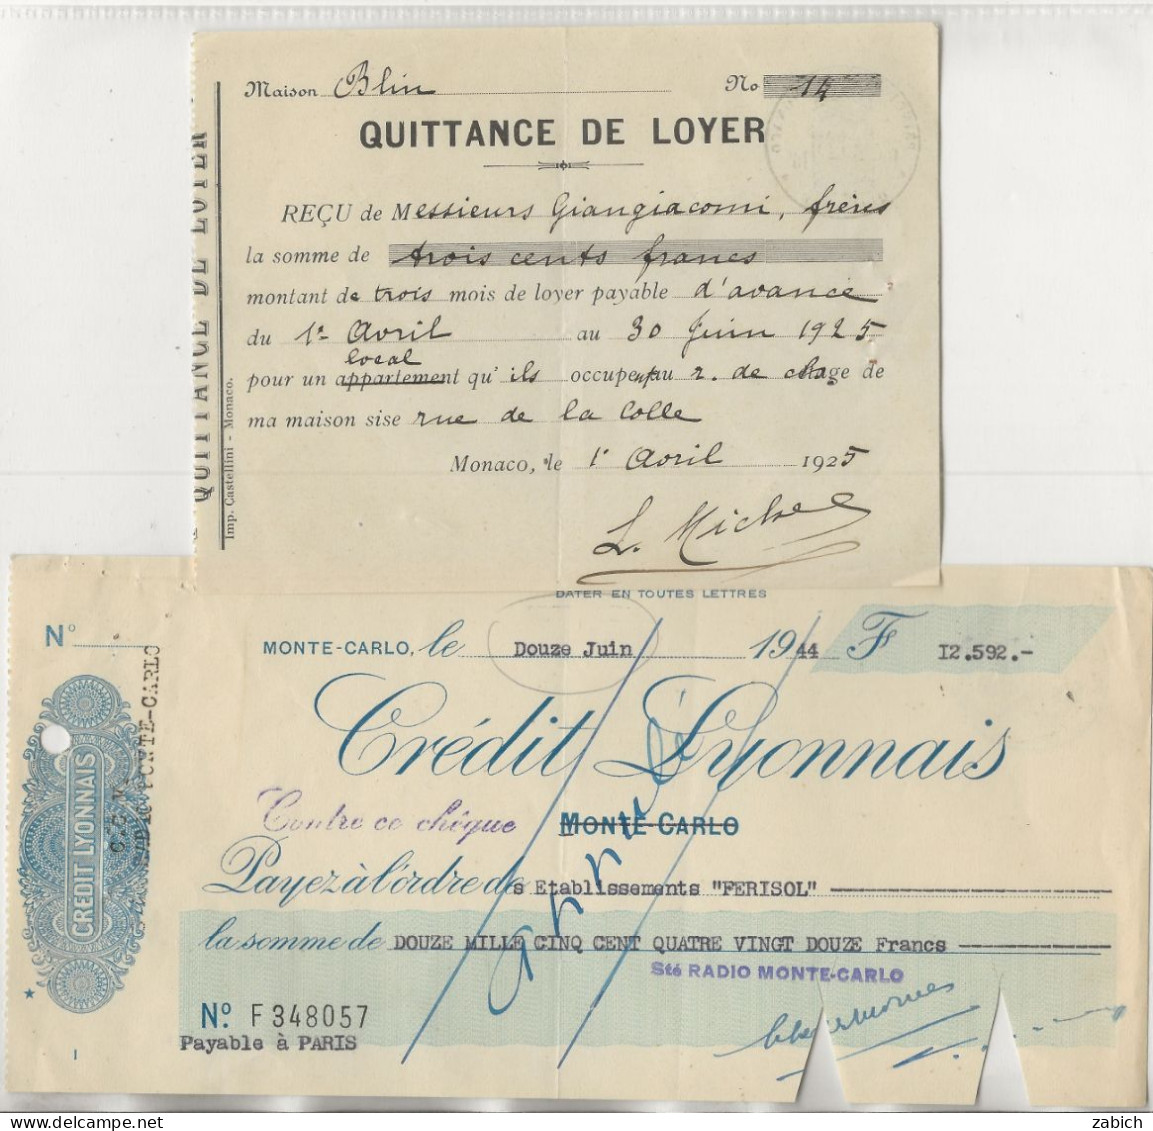 Maison Blin No 14
QUITTANCE DE LOYER
REÇU de Messieurs Giangiacomi, frères
la somme de trois cents francs
montant de trois mois de loyer payable d'avance
du 1er Avril au 30 Juin 1925
local
pour un appartement qu'ils occupent au r. de chage de
ma maison sise rue de la Colle
Monaco, le 1r Avril 1925
L. Michel
QUITTANCE DE LOYER
Imp. Castellini - Monaco.
DATER EN TOUTES LETTRES
No
MONTE-CARLO, le Douze Juin 1944 F 12.592.-
Crédit Lyonnais
Contre ce chèque MONTE-CARLO
Payez à l'ordre des Etablissements "FERISOL"
la somme de DOUZE MILLE CINQ CENT QUATRE VINGT DOUZE Francs
Sté RADIO MONTE-CARLO
No. F 348057
Payable à PARIS
1
annulé
CREDIT LYONNAIS
MONTE-CARLO
zabich